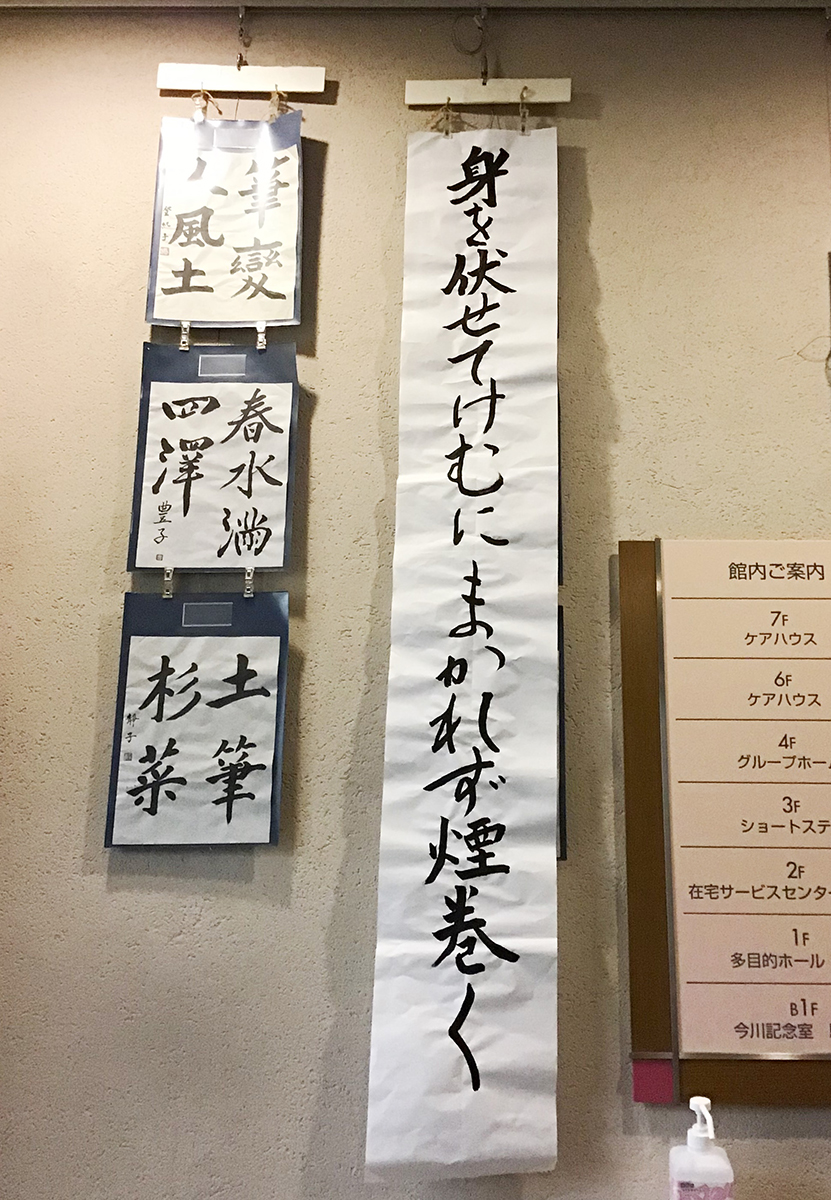 筆變
風土
春水滿
四澤
豊子
土筆
杉菜
静子
身を伏せてけむにまかれず煙巻く
館内ご案内
7F
ケアハウス
6F
ケアハウス
4F
グループホー
3F
ショートステ
2F
在宅サービスセンター
1F
多目的ホール
B1F
今川記念室